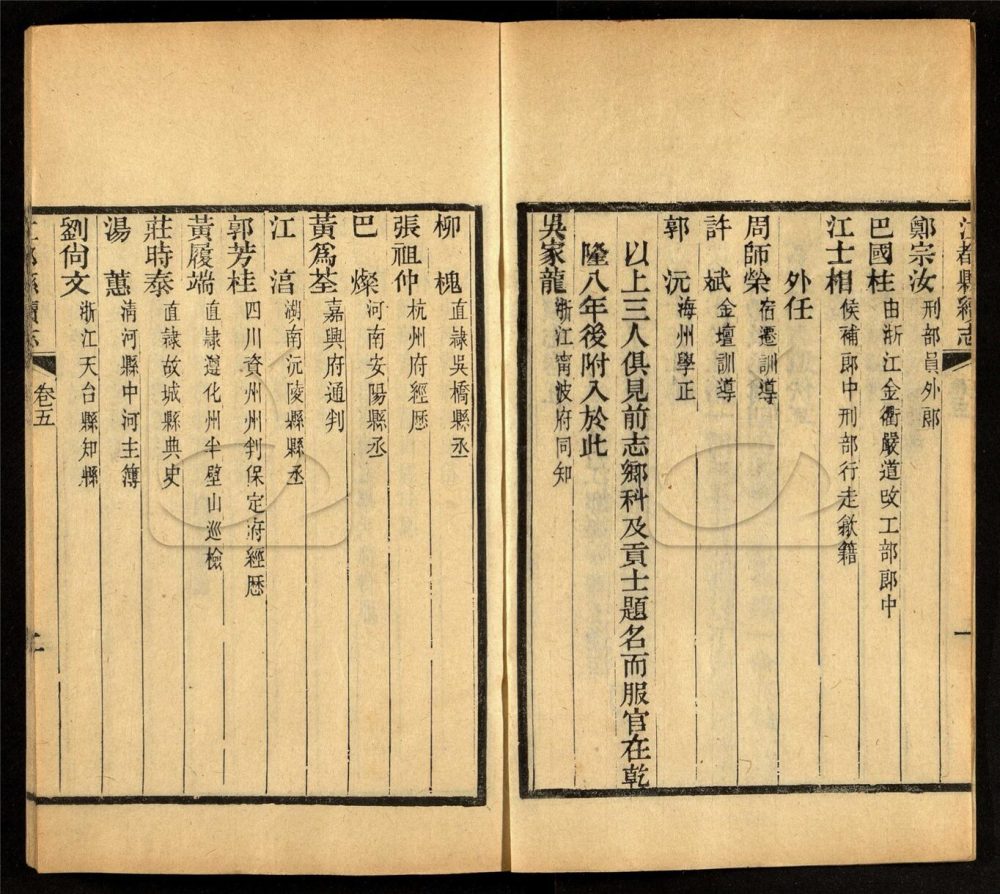 江都縣續志
鄭宗汝 刑部員外郎
巴國桂 由浙江金衢嚴道改工部郎中
江士相 候補郎中刑部行走歙籍
外任
周師榮 宿遷訓導
許斌 金壇訓導
郭沅 海州學正
以上三人俱見前志鄉科及貢士題名而服官在乾
隆八年後附入於此
吳家龍 浙江甯波府同知
柳槐 直隸吳橋縣丞
張祖仲 杭州府經歷
巴燦 河南安陽縣丞
黃爲荃 嘉興府通判
江湻 湖南沅陵縣縣丞
郭芳桂 四川資州州判保定府經歷
黃履端 直隸遵化州半壁山巡檢
莊時泰 直隸故城縣典史
湯蕙 淸河縣中河主簿
劉尙文 浙江天台縣知縣
江都縣續志 卷五